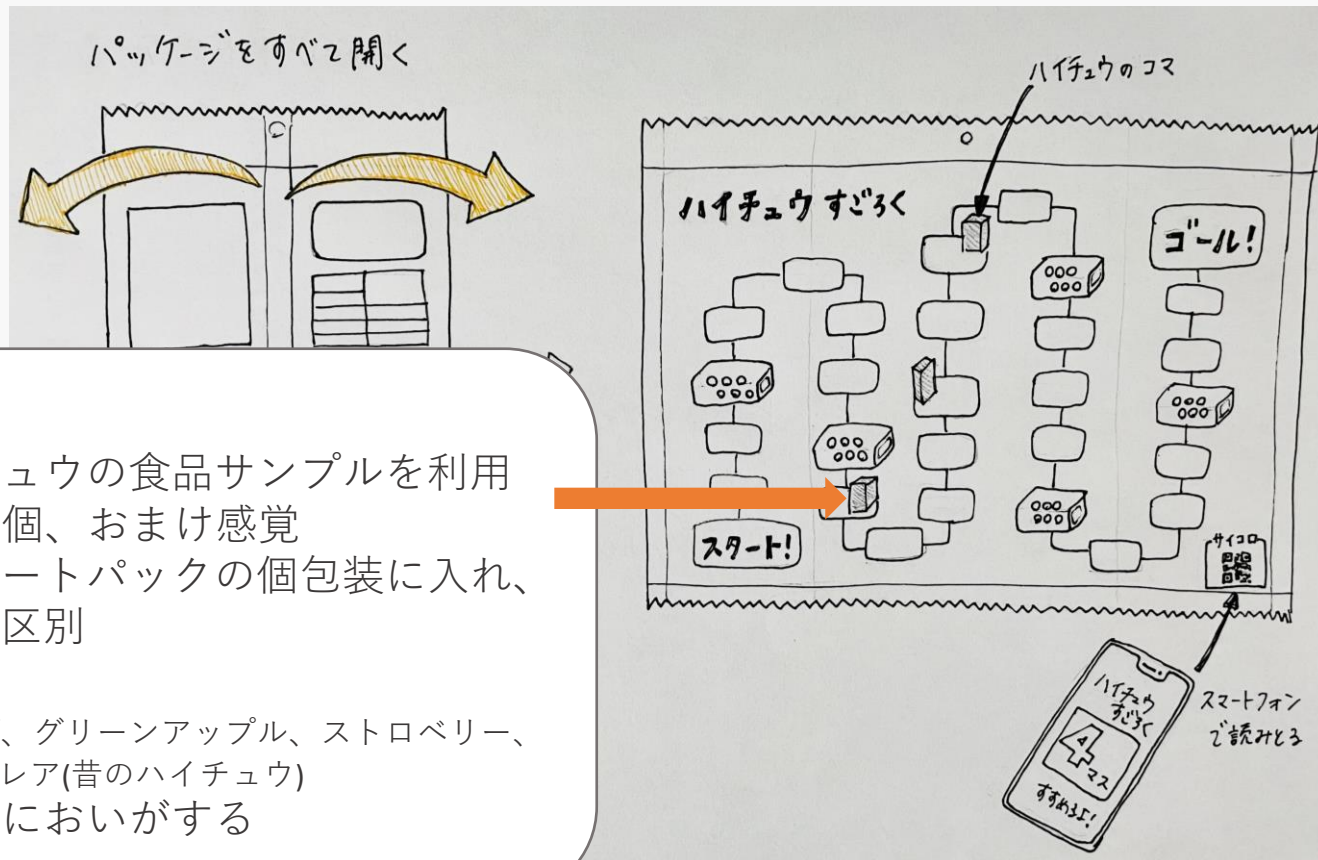 パッケージをすべて開く
ハイチュウのコマ
ハイチュウ すごろく
ゴール!
スタート!
サイコロ
ハイチュウ
すごろく
4
マス
すすめるよ!
スマートフォン
で読みとる
ュウの食品サンプルを利用
個、おまけ感覚
ートパックの個包装に入れ、
区別
、グリーンアップル、ストロベリー、
レア(昔のハイチュウ)
においがする